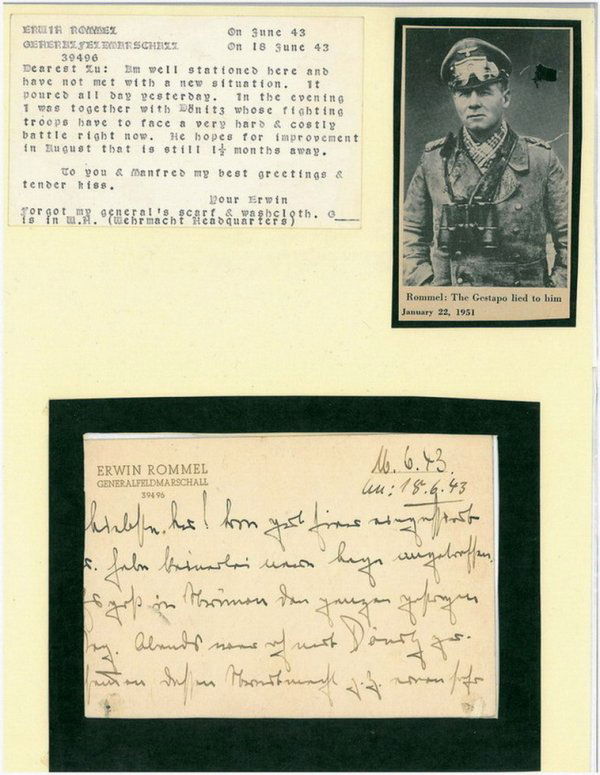 ERWIN ROMMEL On June 43
GENERALFELDMARSCHALL On 18 June 43
39496
Dearest Lu: Am well stationed here and
have not met with a new situation. It
poured all day yesterday. In the evening
I was together with Dönitz whose fighting
troops have to face a very hard & costly
battle right now. He hopes for improvement
in August that is still 1½ months away.
To you & Manfred my best greetings &
tender kiss.
Your Erwin
Forgot my general's scarf & washcloth. G
is in W.H. (Wehrmacht Headquarters)
Rommel: The Gestapo lied to him
January 22, 1951
ERWIN ROMMEL
GENERALFELDMARSCHALL
39496
16.6.43.
an: 18.6.43
Liebste Lu! Bin gut hier
u. habe keinerlei neue Lage angetroffen.
Es goß in Strömen den ganzen gestrigen
Tag. Abends war ich mit Dönitz zu-
sammen dessen Streitmacht z.Z. einen sehr